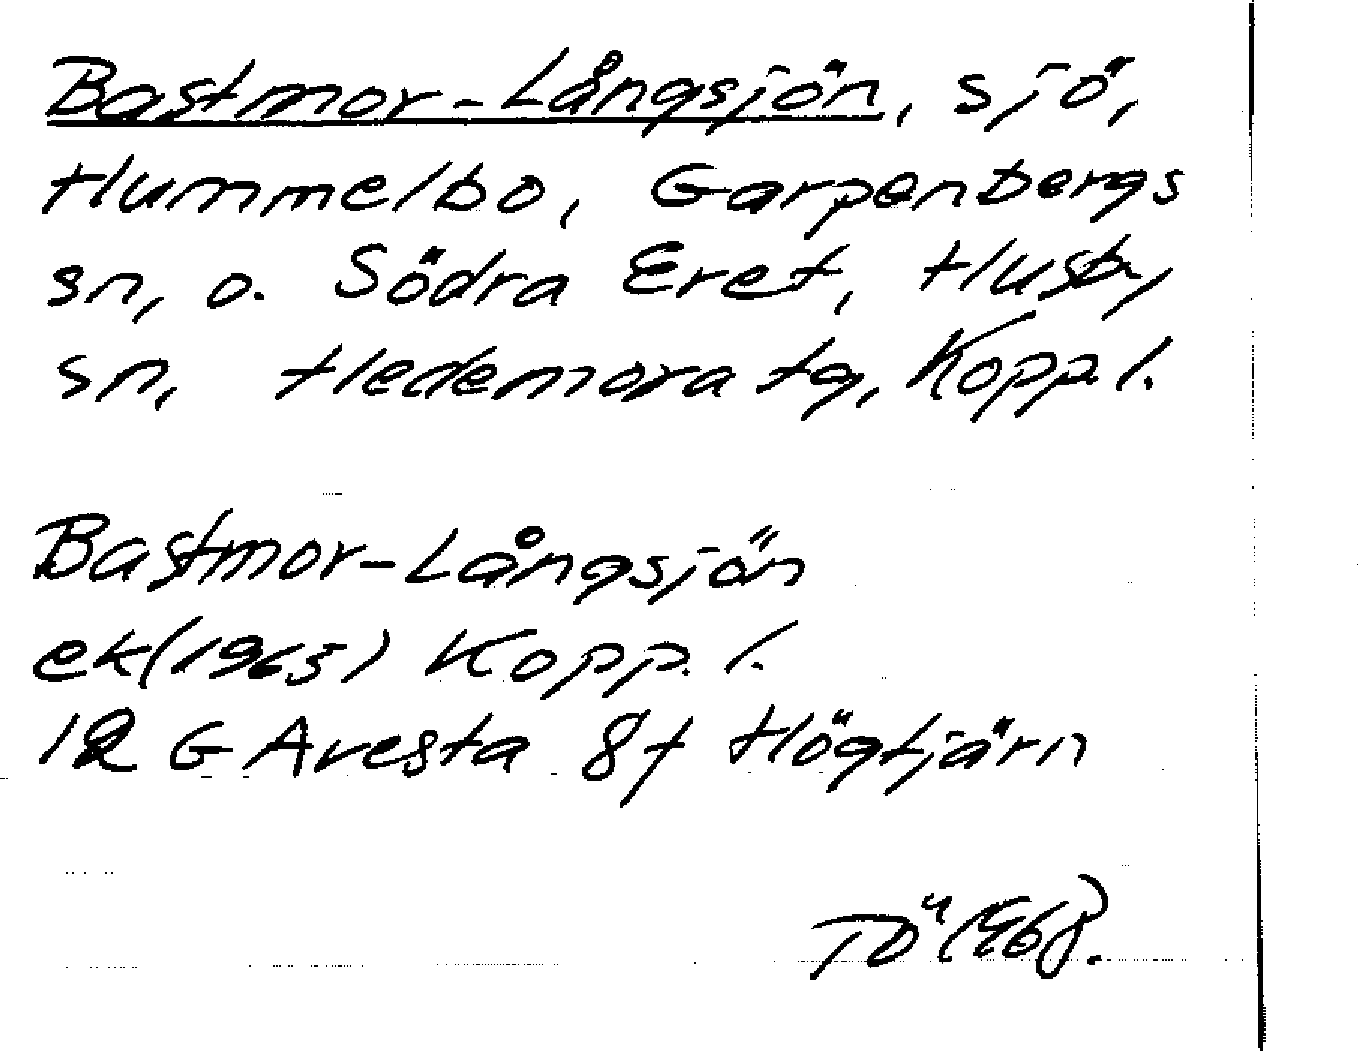 Bastmor-Långsjön, sjö,
Hummelbo, Garpenbergs
sn, o. Södra Eret, Husby
sn, Hedemora tg, Kopp. l.
Bastmor-Långsjön
ek(1965) Kopp. l.
12 G Avesta 8f Högtjärn
TÖ 1968.